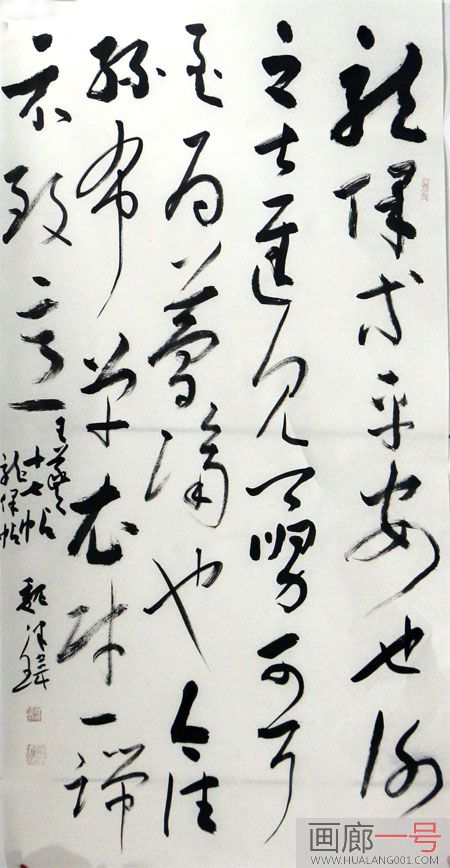 龍保等平安也謝
之甚遲見卿舅可耳
至為簡隔也今往
絲布單衣財一端
示致意
王羲之
十七帖
龍保帖
魏
画廊一号
WWW.HUALANG001.COM